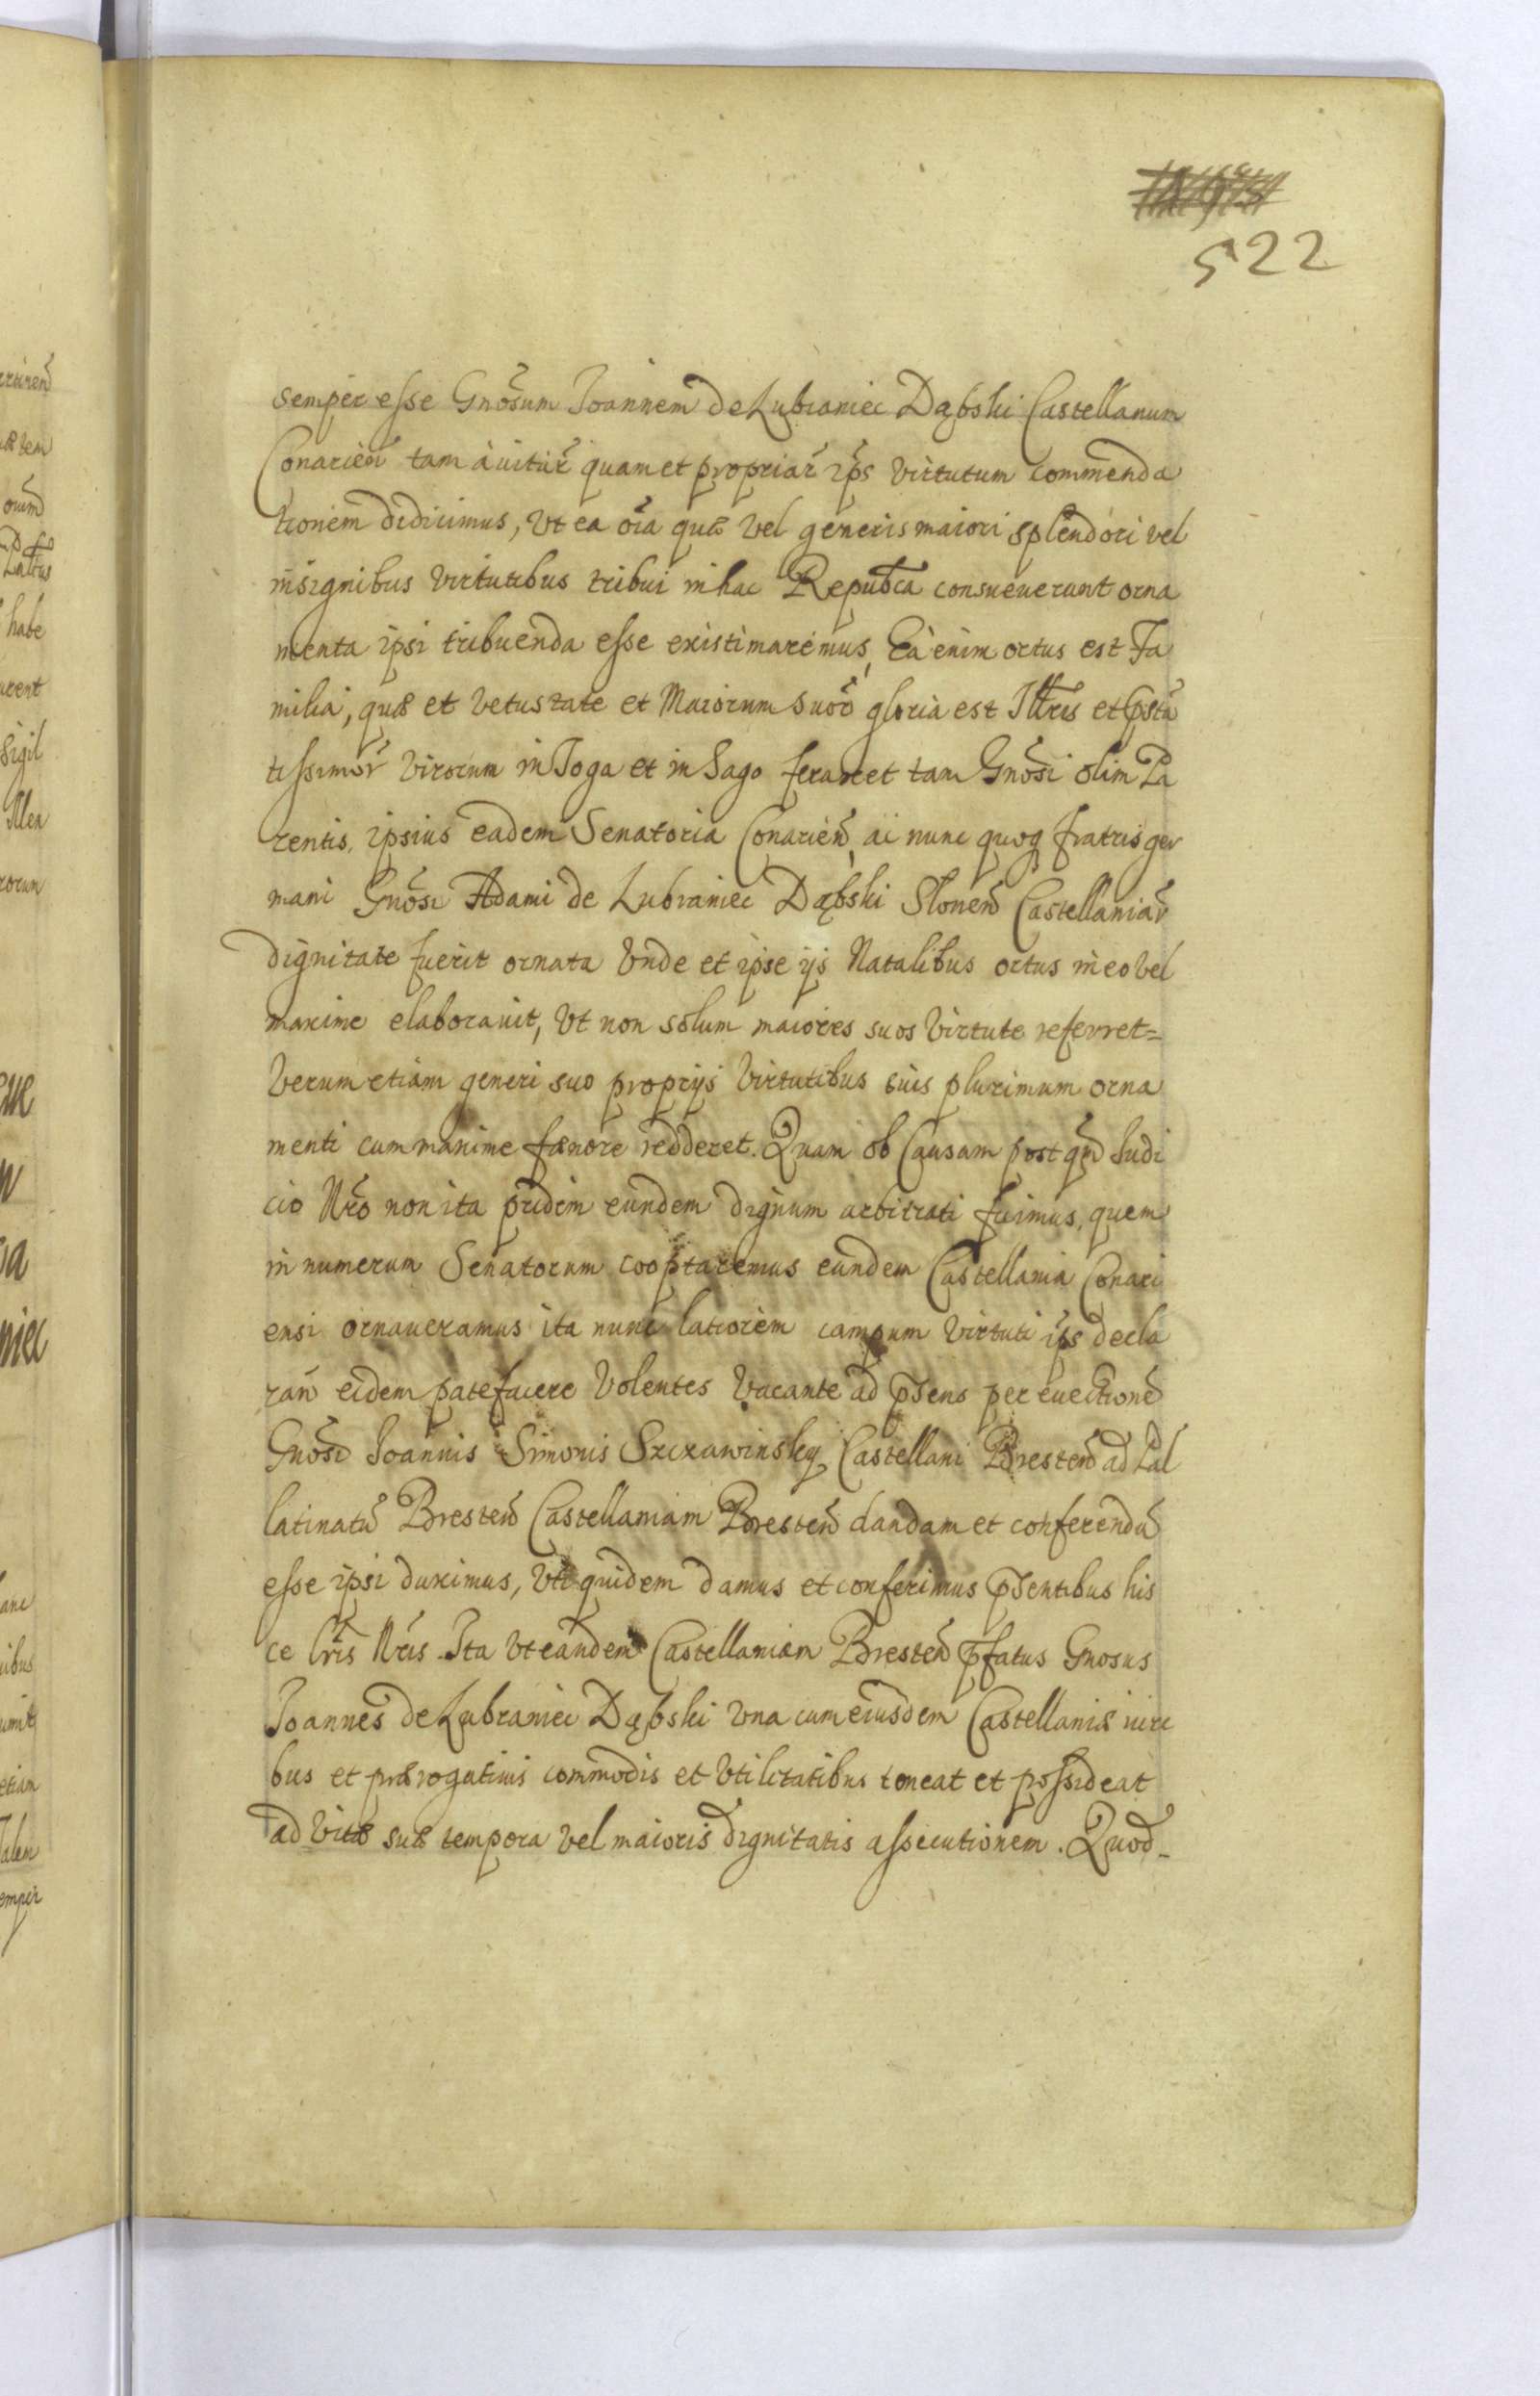 522
semper esse Gnõsum Joannem de Lubraniec Dąbski Castellanum
Conarien̄ tam àuitar̃ quam et propriar̃ ip̃s virtutum commenda
tionem didicimus, vt ea õia quæ vel generis maiori splendori vel
insignibus virtutibus tribui in hac Repub̃ca consueuerunt orna
menta ipsi tribuenda esse existimaremus, Eà enim ortus est Fa
milia, quæ et vetustate et Maiorum suor̃ gloria est Illr̃is et
tissimor̃ virorum in Toga et in Sago et tam Gnõsi olim Pa
rentis, ipsius eadem Senatoria Conarien̄, ac nunc quoq fratris ger
mani Gnõsi Adami de Lubraniec Dąbski Slonen̄ Castellaniar̃
dignitate fuerit ornata Vnde et ipse ijs Natalibus ortus in eo vel
maxime elaborauit, vt non solum maiores suos virtute referret=
verum etiam generi suo proprijs virtutibus suis plurimum orna
menti cum maxime fænore redderet. Quam ob Causam post qm̄ Iudi
cio Nr̃o non ita pridem eundem dignum arbitrati fuimus, quem
in numerum Senatorum cooptaremus eundem Castellania Conari
ensi ornaueramus ita nunc latiorem campum virtuti ip̃s decla
ran̄ eidem patefacere volentes vacante ad p̃sens per euectionē
Gnõsi Joannis Simonis Szczawinsky Castellani Bresten̄ ad Pal
latinatū Bresten̄ Castellaniam Bresten̄ dandam et conferendā
esse ipsi duximus, vti quidem damus et conferimus p̃sentibus his
ce lr̃is Nr̃is. Ita vt eandem Castellaniam Bresten̄ p̃fatus Gnosus
Joannes de Lubraniec Dąbski vna cum eiusdem Castellaniæ iuri
bus et prærogatiuis commodis et vtilitatibus teneat et possideat
ad vitæ suæ tempora vel maioris dignitatis assecutionem. Quod_